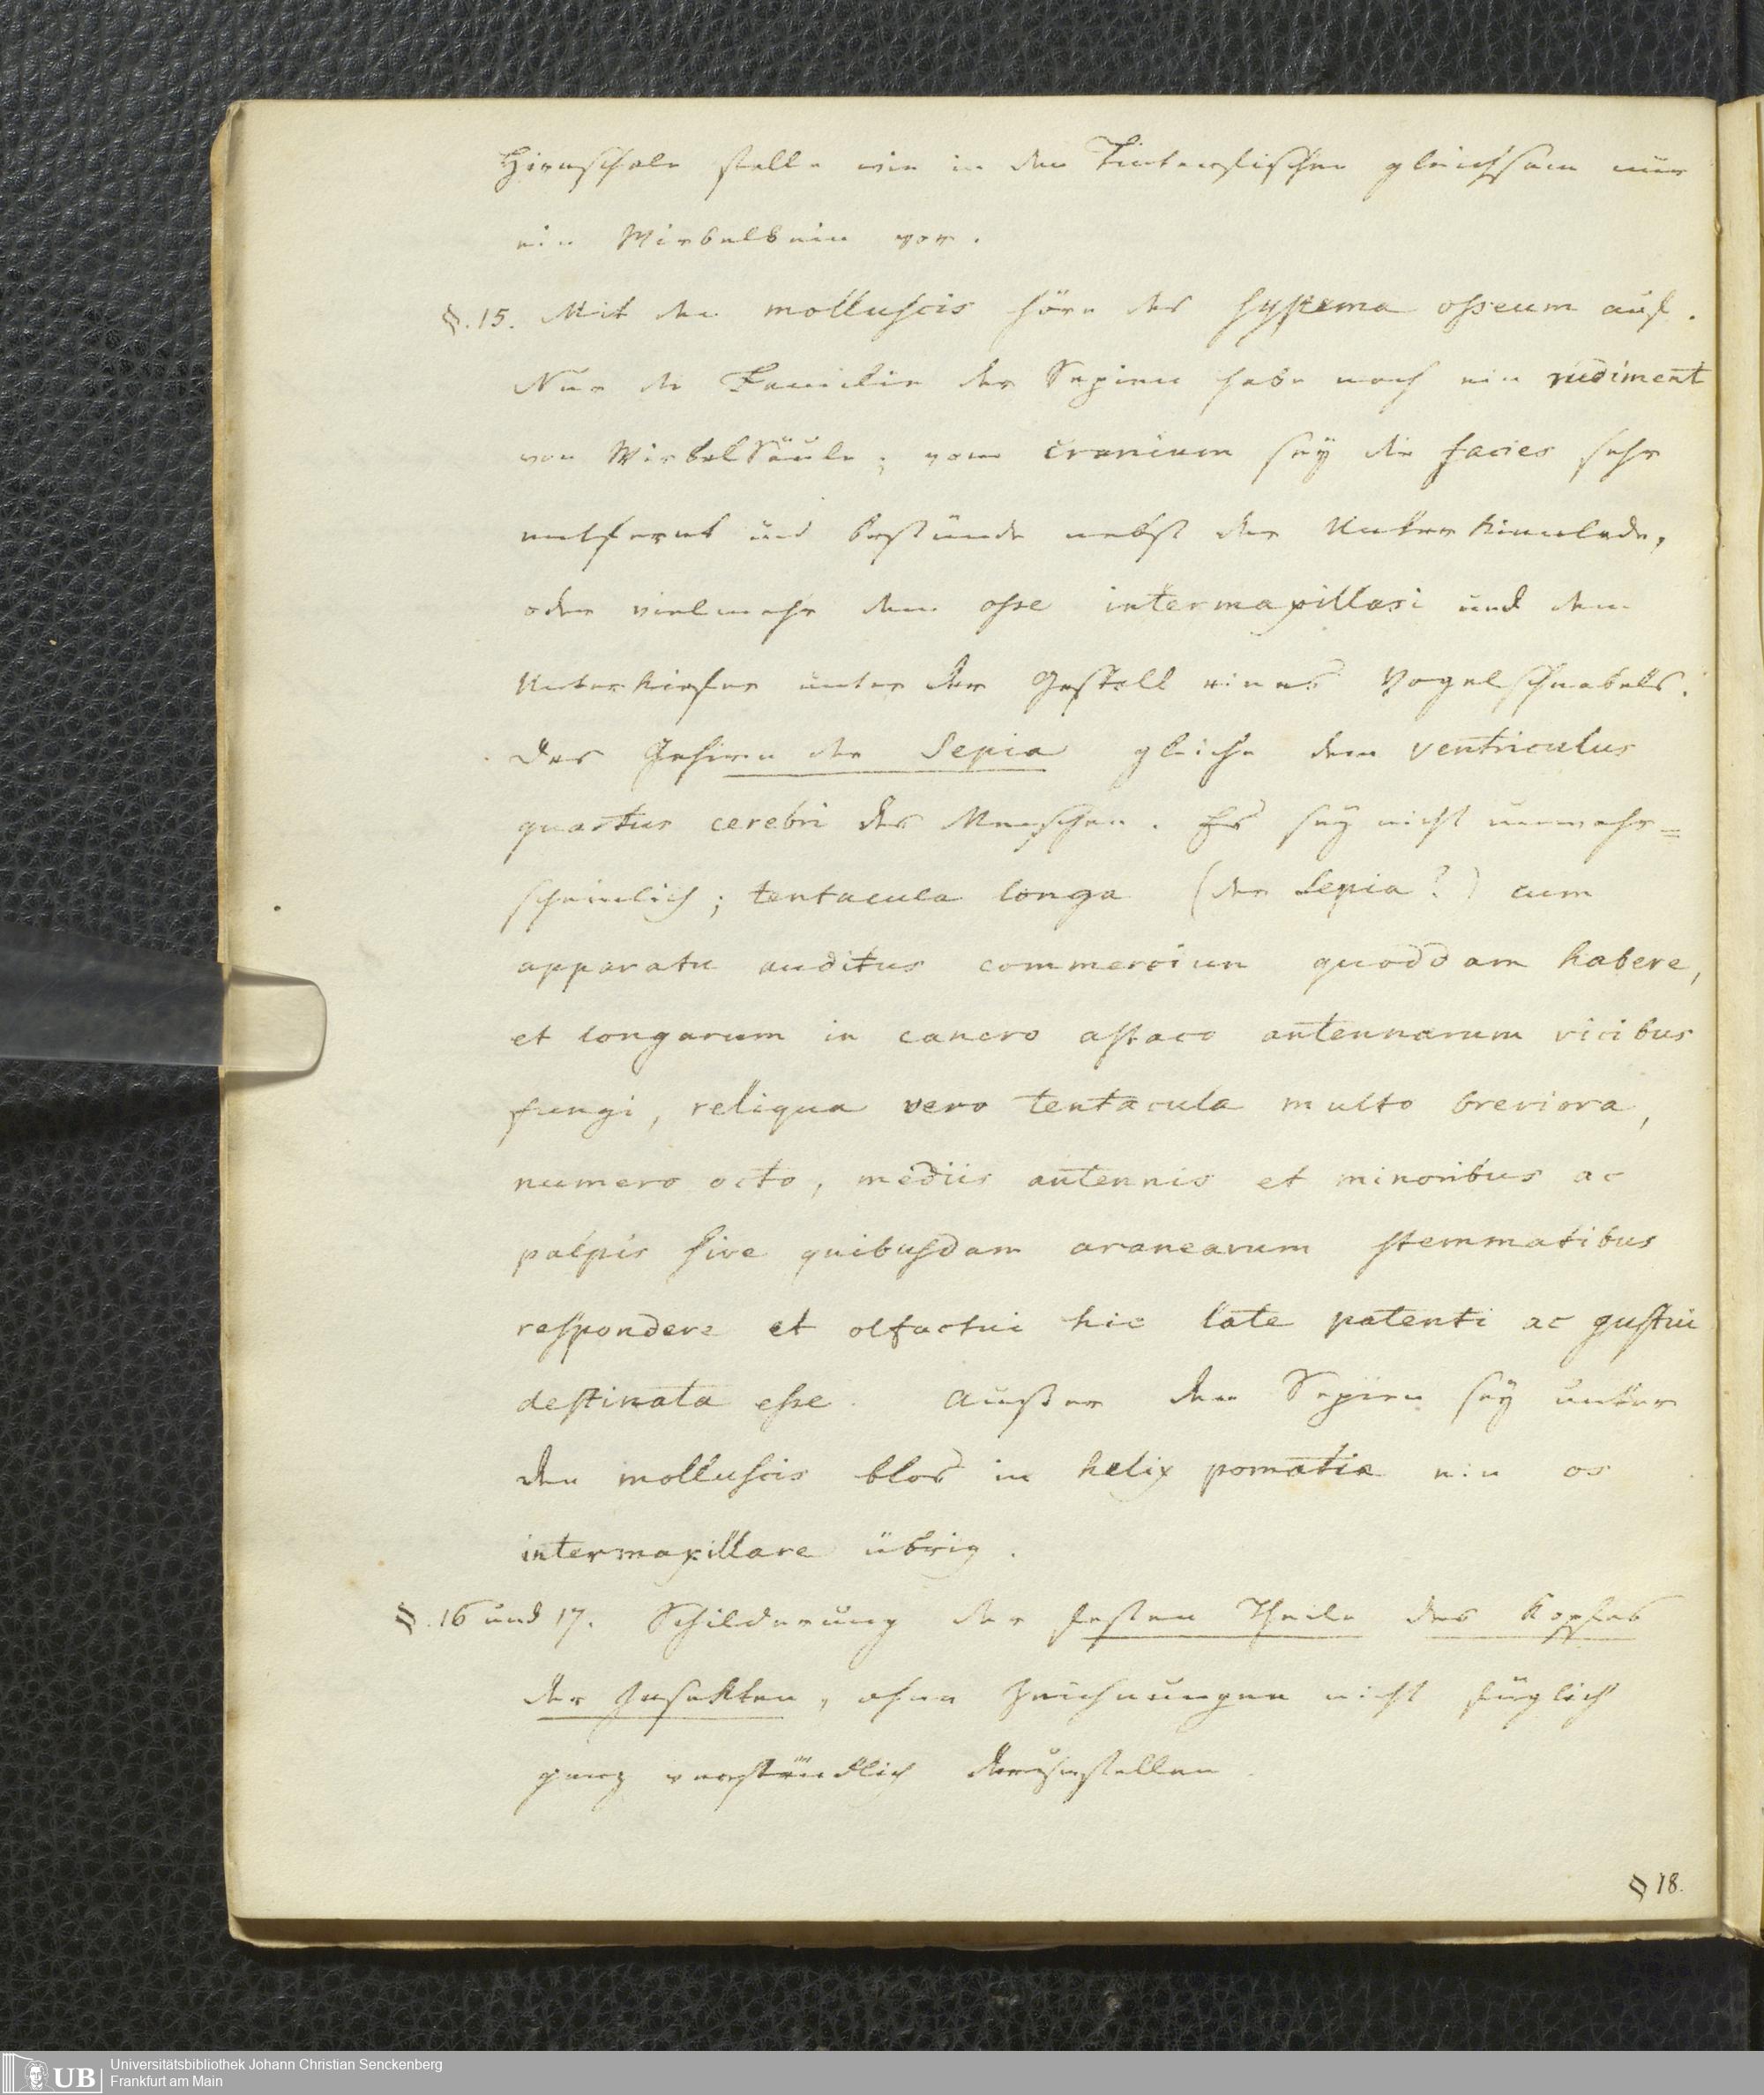 Hirnschale stelle wie in den Tintenfischen gleichsam nur
ein Wirbelbein vor.
§. 15. Mit den molluscis höre das systema osseum auf.
Nur die Familie der Sepien habe noch ein rudiment
von WirbelSäule; vom cranium sey die facies sehr
entfernt und bestünde nebst der Unterkinnlade,
oder vielmehr dem osse intermaxillari und dem
Unterkiefer unter der Gestalt eines Vogelschnabels.
Das Gehirn der Sepia gleiche dem ventriculus
quartus cerebri des Menschen. Es sey nicht unwahr=
scheinlich; tentacula longa (der Sepia?) cum
apparatu auditus commercium quoddam habere,
et longarum in cancro astaco antennarum vicibus
fungi, reliqua vero tentacula multo breviora,
numero octo, mediis antennis et minoribus ac
palpis sive quibusdam aranearum stemmatibus
respondere et olfactui hic late patenti ac gustui
destinata esse. Außer den Sepien sey unter
den molluscis blos in helix pomatia ein os
intermaxillare übrig.
§. 16 und 17. Schilderung der festen Theile des Kopfes
der Insekten, ohne Zeichnungen nicht füglich
ganz verständlich darzustellen.
§ 18.
UB Universitätsbibliothek Johann Christian Senckenberg
Frankfurt am Main